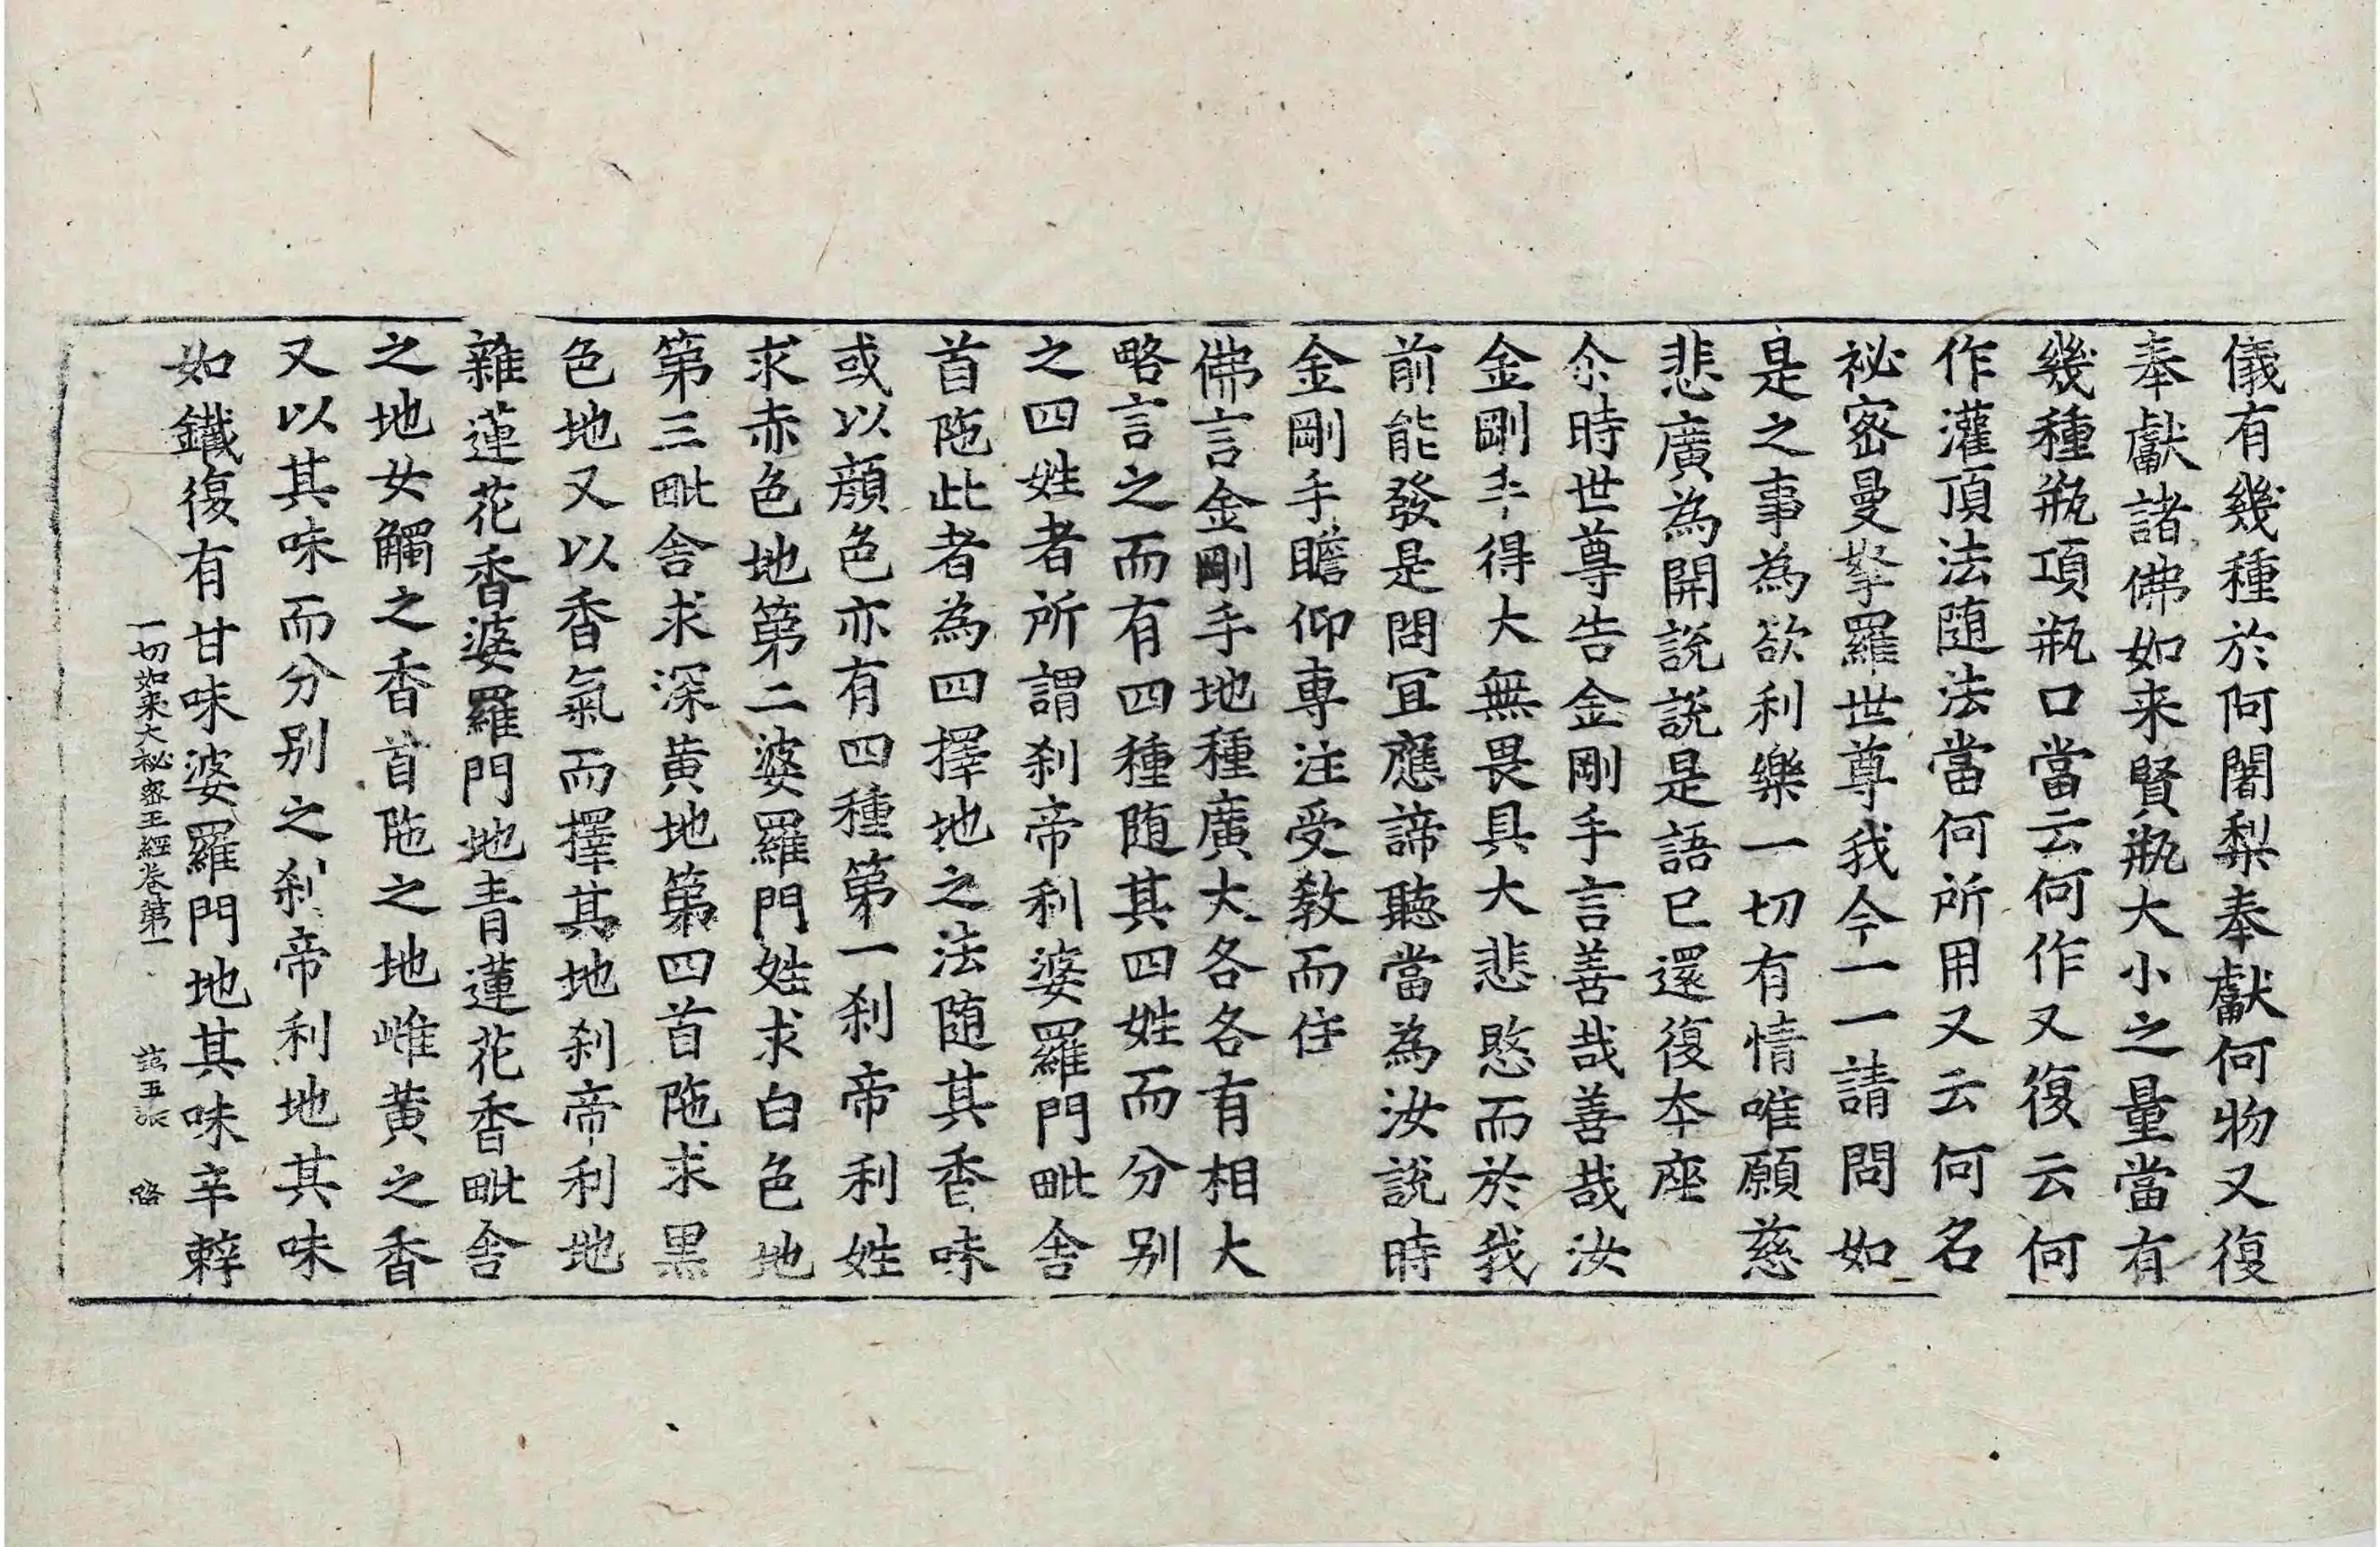 儀有幾種於阿闍梨奉獻何物又復
奉獻諸佛如来賢瓶大小之量當有
幾種瓶項瓶口當云何作又復云何
作灌頂法随法當何所用又云何名
祕密曼拏羅世尊我今一一請問如
是之事為欲利樂一切有情唯願慈
悲廣為開說說是語已還復本座
尒時世尊告金剛手言善哉善哉汝
金剛手得大無畏具大悲愍而於我
前能發是問宜應諦聽當為汝說時
金剛手瞻仰專注受教而住
佛言金剛手地種廣大各各有相大
略言之而有四種随其四姓而分别
之四姓者所謂刹帝利婆羅門毗舍
首陁此者為四擇地之法随其香味
或以顔色亦有四種第一刹帝利姓
求赤色地第二婆羅門姓求白色地
第三毗舍求深黄地第四首陁求黑
色地又以香氣而擇其地刹帝利地
雜蓮花香婆羅門地青蓮花香毗舍
之地女觸之香首陁之地雌黄之香
又以其味而分别之刹帝利地其味
如鐵復有甘味婆羅門地其味辛𮝴
一切如来大秘密王經卷第一 五張